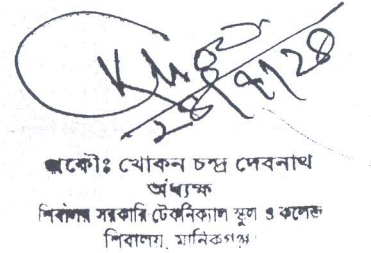 প্রকৌঃ খোকন চন্দ্র দেবনাথ
অধ্যক্ষ
শিবালয় সরকারি টেকনিক্যাল স্কুল ও কলেজ
শিবালয়, মানিকগঞ্জ